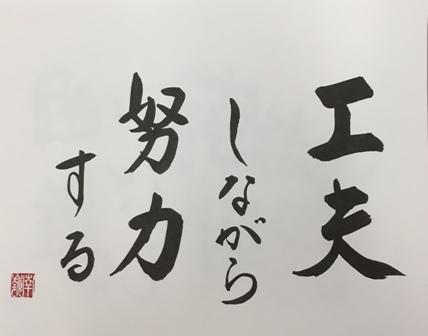 工夫
しながら
努力
する